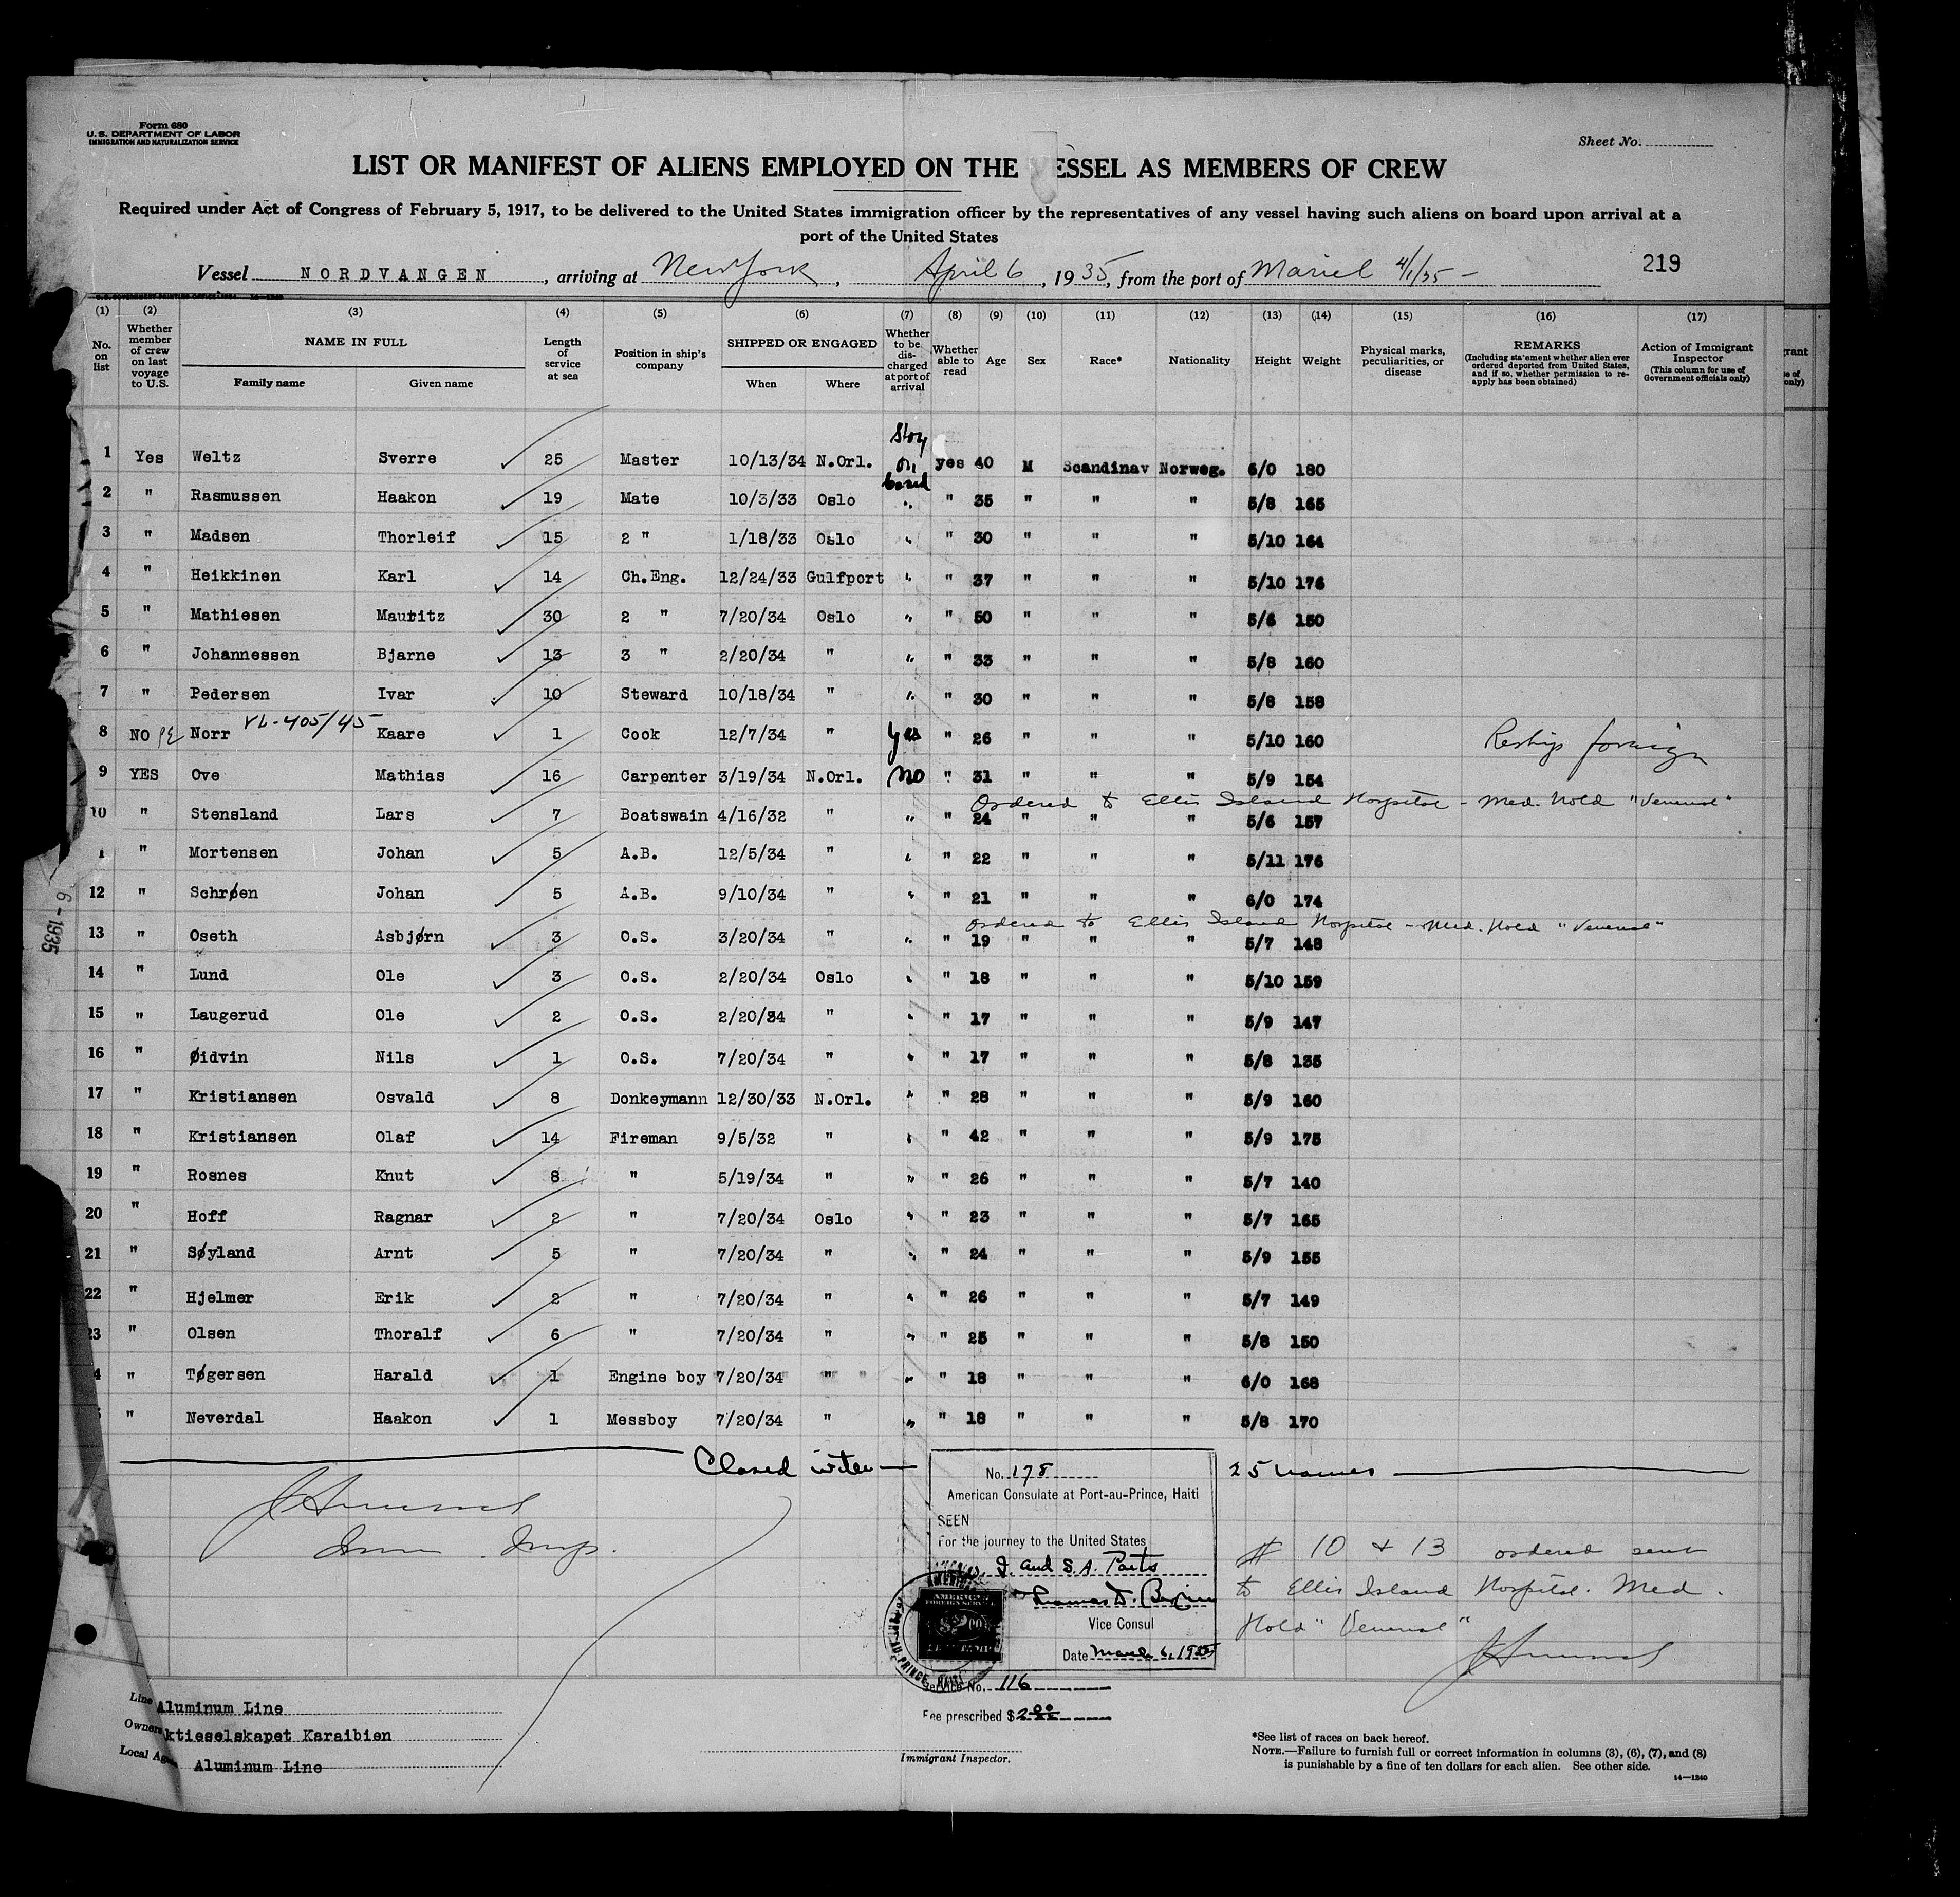 Form 680
U.S. DEPARTMENT OF LABOR
IMMIGRATION AND NATURALIZATION SERVICE
Sheet No.
LIST OR MANIFEST OF ALIENS EMPLOYED ON THE VESSEL AS MEMBERS OF CREW
Required under Act of Congress of February 5, 1917, to be delivered to the United States immigration officer by the representatives of any vessel having such aliens on board upon arrival at a
port of the United States
Vessel NORDVANGEN, arriving at New York, April 6, 1935, from the port of Mariel 4/1/35 - 219
(1) No. on list
(2) Whether member of crew on last voyage to U.S.
(3) NAME IN FULL Family name Given name
(4) Length of service at sea
(5) Position in ship's company
(6) SHIPPED OR ENGAGED When Where
(7) Whether to be discharged at port of arrival
(8) Whether able to read
(9) Age
(10) Sex
(11) Race*
(12) Nationality
(13) Height
(14) Weight
(15) Physical marks, peculiarities, or disease
(16) REMARKS (Including statement whether alien ever ordered deported from United States, and if so, whether permission to reapply has been obtained)
(17) Action of Immigrant Inspector (This column for use of Government officials only)
1 Yes Weltz Sverre 25 Master 10/13/34 N.Orl. Stay on board yes 40 M Scandinav Norweg. 6/0 180
2 " Rasmussen Haakon 19 Mate 10/3/33 Oslo " " 35 " " " 5/8 165
3 " Madsen Thorleif 15 2 " 1/18/33 Oslo " " 30 " " " 5/10 164
4 " Heikkinen Karl 14 Ch.Eng. 12/24/33 Gulfport " " 37 " " " 5/10 176
5 " Mathiesen Mauritz 30 2 " 7/20/34 Oslo " " 50 " " " 5/6 150
6 " Johannessen Bjarne 13 3 " 2/20/34 " " " 33 " " " 5/8 160
7 " Pedersen Ivar 10 Steward 10/18/34 " " " 30 " " " 5/8 158
8 NO Norr VL-405/45 Kaare 1 Cook 12/7/34 " Yes " 26 " " " 5/10 160 Reship foreign
9 YES Ove Mathias 16 Carpenter 3/19/34 N.Orl. No " 31 " " " 5/9 154
Ordered to Ellis Island Hospital - Med. Hold "Venereal"
10 " Stensland Lars 7 Boatswain 4/16/32 " " " 24 " " " 5/6 157
1 " Mortensen Johan 5 A.B. 12/5/34 " " " 22 " " " 5/11 176
12 " Schrøen Johan 5 A.B. 9/10/34 " " " 21 " " " 6/0 174
6 - 1935
Ordered to Ellis Island Hospital - Med. Hold "Venereal"
13 " Oseth Asbjørn 3 O.S. 3/20/34 " " " 19 " " " 5/7 148
14 " Lund Ole 3 O.S. 2/20/34 Oslo " " 18 " " " 5/10 159
15 " Laugerud Ole 2 O.S. 2/20/34 " " " 17 " " " 5/9 147
16 " Øidvin Nils 1 O.S. 7/20/34 " " " 17 " " " 5/8 135
17 " Kristiansen Osvald 8 Donkeymann 12/30/33 N.Orl. " " 28 " " " 5/9 160
18 " Kristiansen Olaf 14 Fireman 9/5/32 " " " 42 " " " 5/9 175
19 " Rosnes Knut 8 " 5/19/34 " " " 26 " " " 5/7 140
20 " Hoff Ragnar 2 " 7/20/34 Oslo " " 23 " " " 5/7 165
21 " Søyland Arnt 5 " 7/20/34 " " " 24 " " " 5/9 155
22 " Hjelmer Erik 2 " 7/20/34 " " " 26 " " " 5/7 149
23 " Olsen Thoralf 6 " 7/20/34 " " " 25 " " " 5/8 150
4 " Tøgersen Harald 1 Engine boy 7/20/34 " " " 18 " " " 6/0 168
" Neverdal Haakon 1 Messboy 7/20/34 " " " 18 " " " 5/8 170
Closed with 25 names
Imm. Insp.
No. 178
American Consulate at Port-au-Prince, Haiti
SEEN
For the journey to the United States
W. I. and S.A. Ports
Vice Consul
Date March 6, 1935
AMERICAN FOREIGN SERVICE
$2.00
Service No. 116
Fee prescribed $2.00
# 10 & 13 ordered sent
to Ellis Island Hospital. Med.
Hold "Venereal"
Line Aluminum Line
Owners ktieselskapet Karaibien
Local Age Aluminum Line
Immigrant Inspector.
*See list of races on back hereof.
NOTE.—Failure to furnish full or correct information in columns (3), (6), (7), and (8)
is punishable by a fine of ten dollars for each alien. See other side.
14—1240